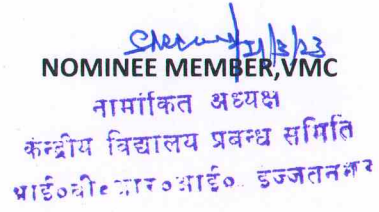 31/3/23
NOMINEE MEMBER,VMC
नामांकित अध्यक्ष
केन्द्रीय विद्यालय प्रबन्ध समिति
भाई०वी०आर०आई० इज्जतनगर